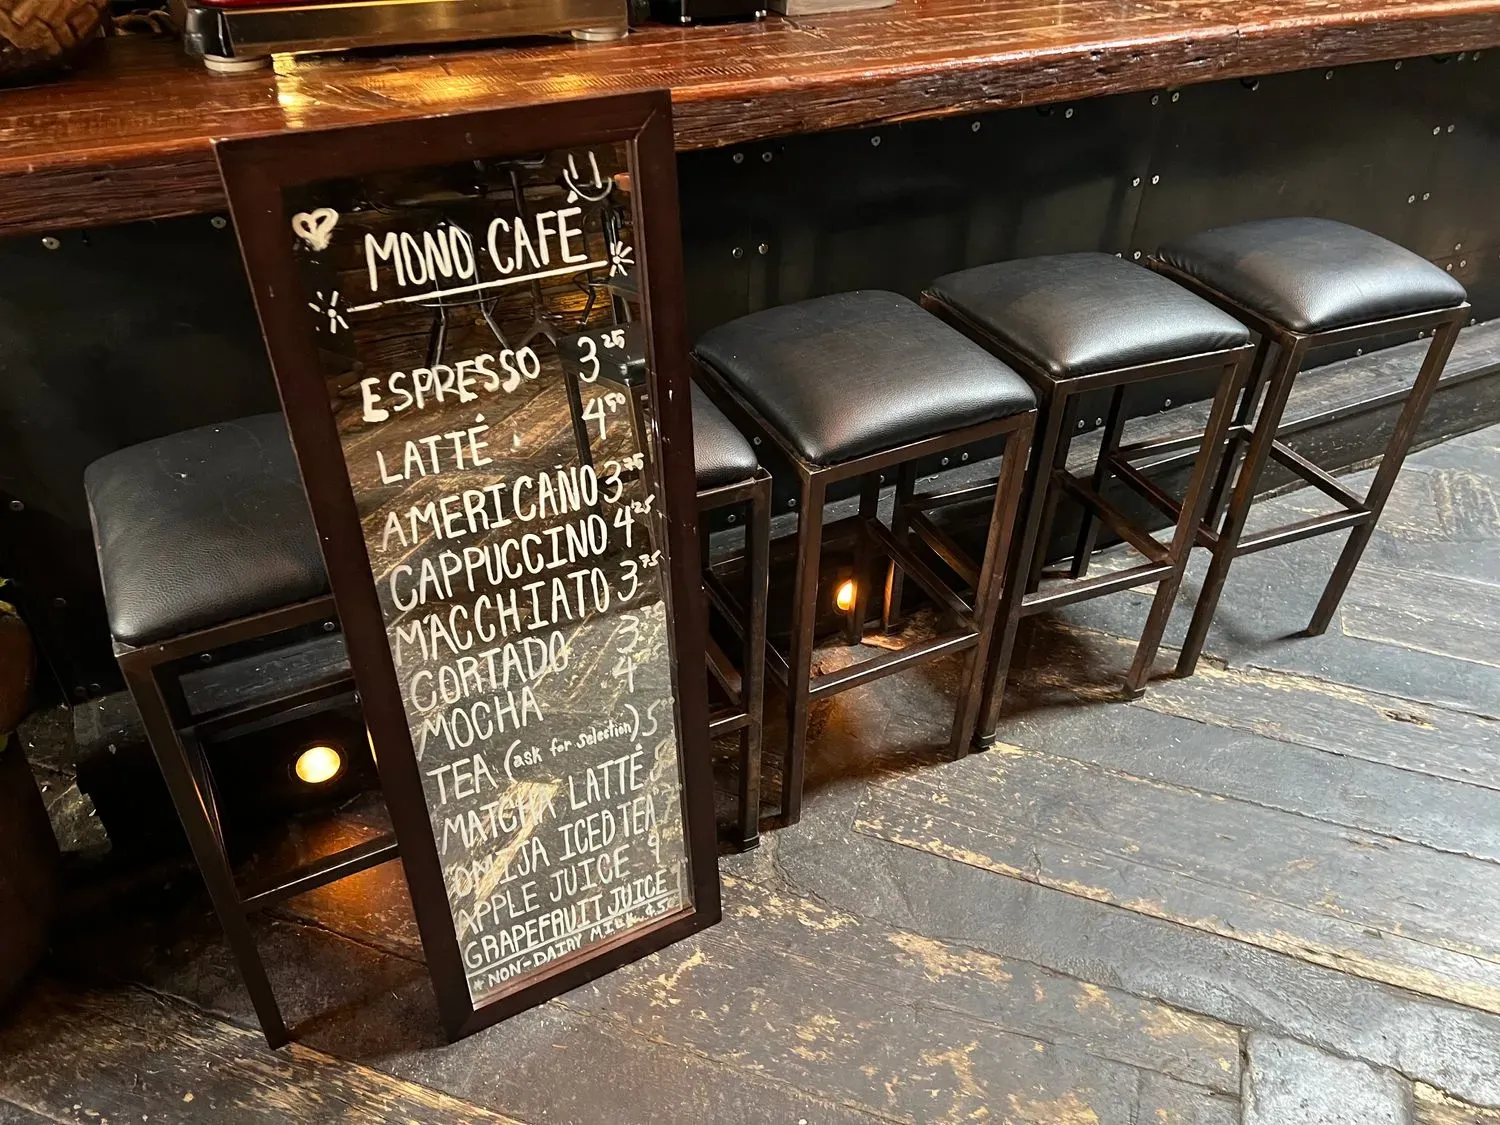 MONO CAFÉ
ESPRESSO 3.25
LATTÉ 4.50
AMERICANO 3.75
CAPPUCCINO 4.25
MACCHIATO 3.75
CORTADO 3
MOCHA 4
TEA (ask for selection) 5
MATCHA LATTÉ
ICED TEA
APPLE JUICE
GRAPEFRUIT JUICE
* NON-DAIRY MILK